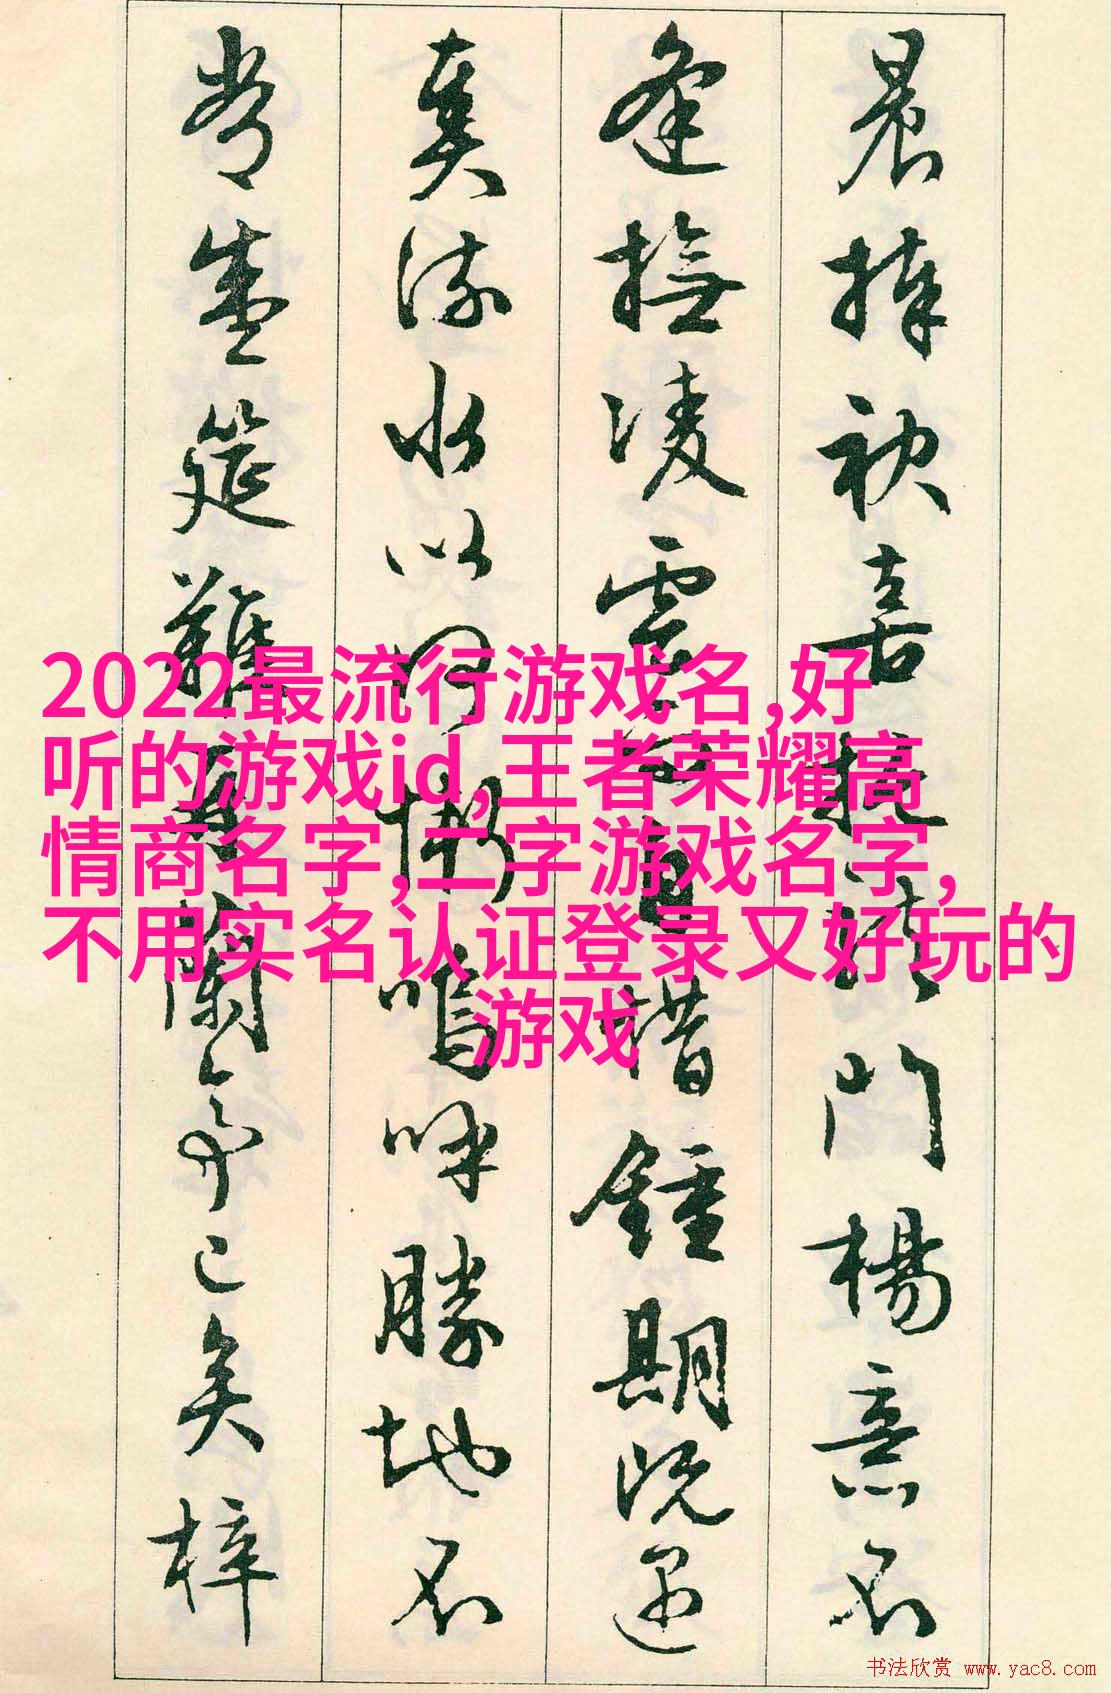 晨捧袂喜門楊意不
逢撫凌雲而自惜鍾期既遇
奏流水以何慚嗚呼勝地不
常盛筵難再蘭亭已矣梓
2022最流行游戏名,好
听的游戏id,王者荣耀高
情商名字,二字游戏名字,
不用实名认证登录又好玩的
游戏
书法欣赏 www.yac8.com